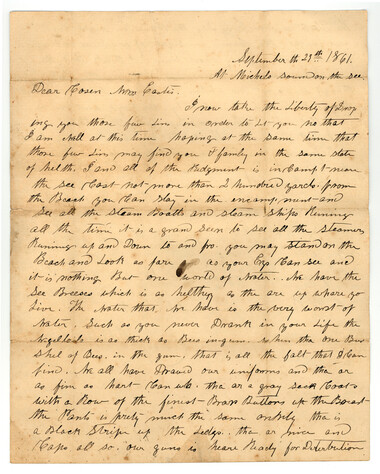 September th 29th 1861.
At Michels sound on the see
Dear Cosen Mrs Easter.
I now take the Liberty of Drop
ing you those few Lins in order to Let you no that
I am well at this time hoping at the same time that
those few Lins may find you & family in the same state
of helth. I and all of the Redgment is in Camp near
the see Coast not more than 2 hundred yards from
the Beach you Can stay in the encampment and
see all the steam Boatts and steam ships Runing
all the time it is a grand seen to see all the steamers
Runing up and Down to and fro. you may stand on the
Beach and Look as fare as your Eys Can see and
it is nothing But one world of Water. We have the
See Breeses which is as helthey as the are up whare you
Live. The Water that we have is the very worst of
Water. Such as you never Drank in your Life the
is as thick as Bees in gum when tha one Bu
shel of Bees in the gum, that is all the falt that I Can
find. We all have Drawd our uniforms and tha ar
as fin as hart Can wish. tha ar a gray sack Coats
with a Row of the finest Brass Buttons up the Breast
the Pants is prety much the same tha is
a Black Stripe up the Ledgs. tha ar nice and
Caps all so. our guns is heare Ready for Distribution